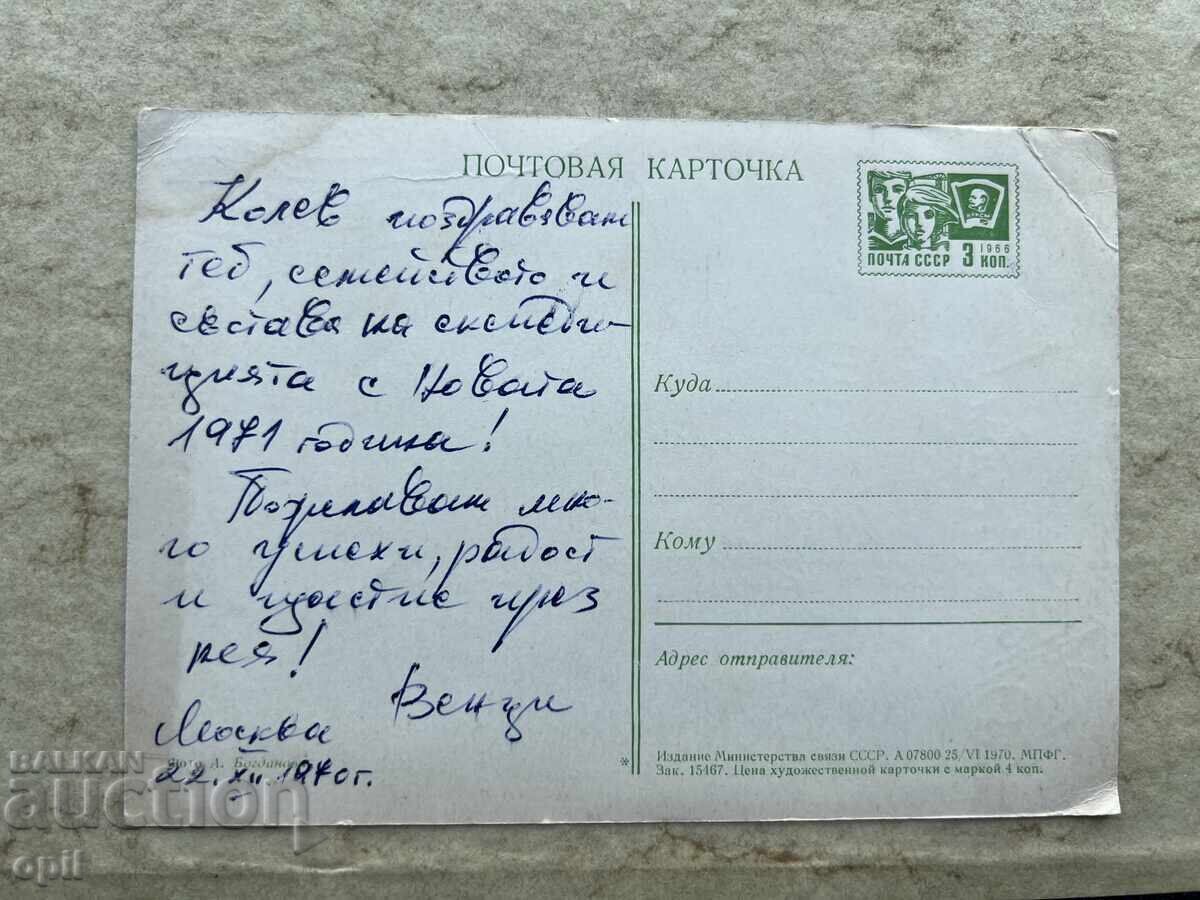 ПОЧТОВАЯ КАРТОЧКА
Колев поздравявам
теб, семейството и
състава на експеди-
цията с Новата
1971 година!
Пожелавам мно-
го успехи, радост
и щастие през
нея!
Венци
Москва
22.XII.1970г.
Фото А. Богданова
ПОЧТА СССР 3 КОП.
1966
Куда
Кому
Адрес отправителя:
*
Издание Министерства связи СССР. А 07800 25/VI 1970. МПФГ.
Зак. 15467. Цена художественной карточки с маркой 4 коп.
BALKAN
auction
opil